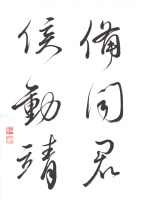 備問君
侯動靖